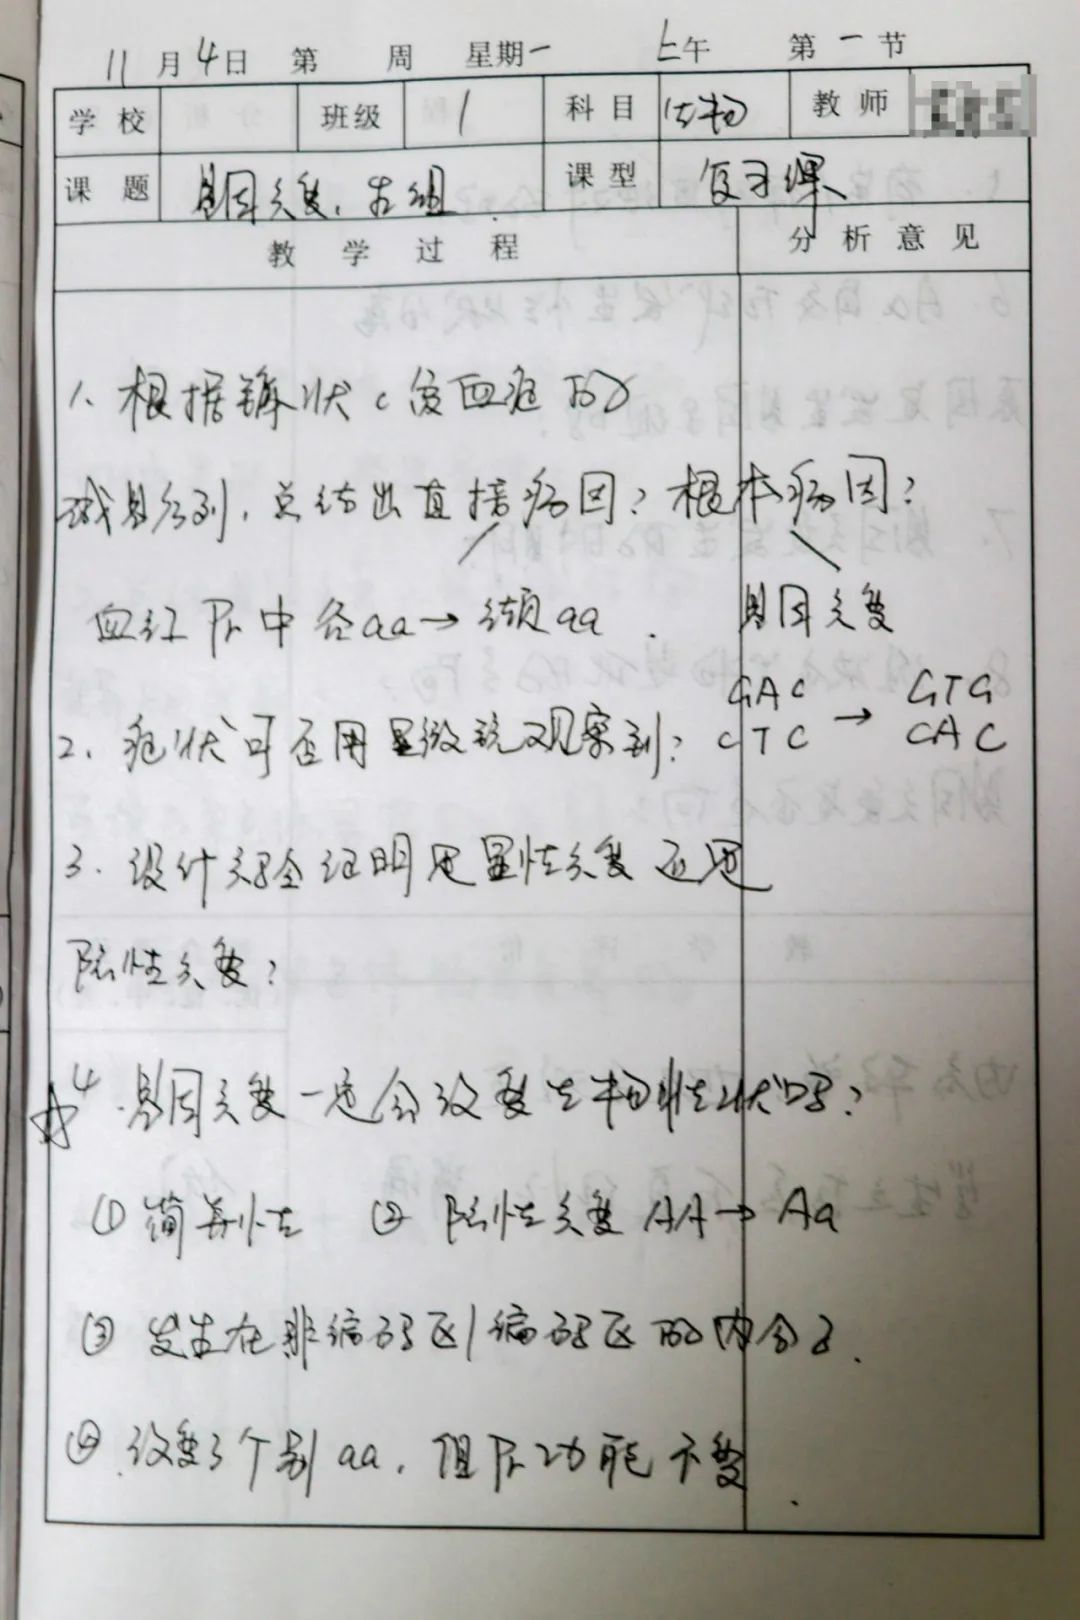 11月4日 第 周 星期一 上午 第一节
学校 班级 1 科目 生物 教师
课题 基因突变、重组 课型 复习课
教学过程 分析意见
1、根据镰状c贫血症的
碱基序列，总结出直接病因？根本病因？
血红Pr中谷aa→缬aa 基因突变
GAG → GTG
2、症状可否用显微镜观察到？ CTC CAC
3、设计实验证明是显性突变还是
隐性突变？
☆4、基因突变一定会改变生物性状吗？
①简并性 ②隐性突变AA→Aa
③发生在非编码区/编码区的内含子.
④改变了个别aa，但Pr功能不变.